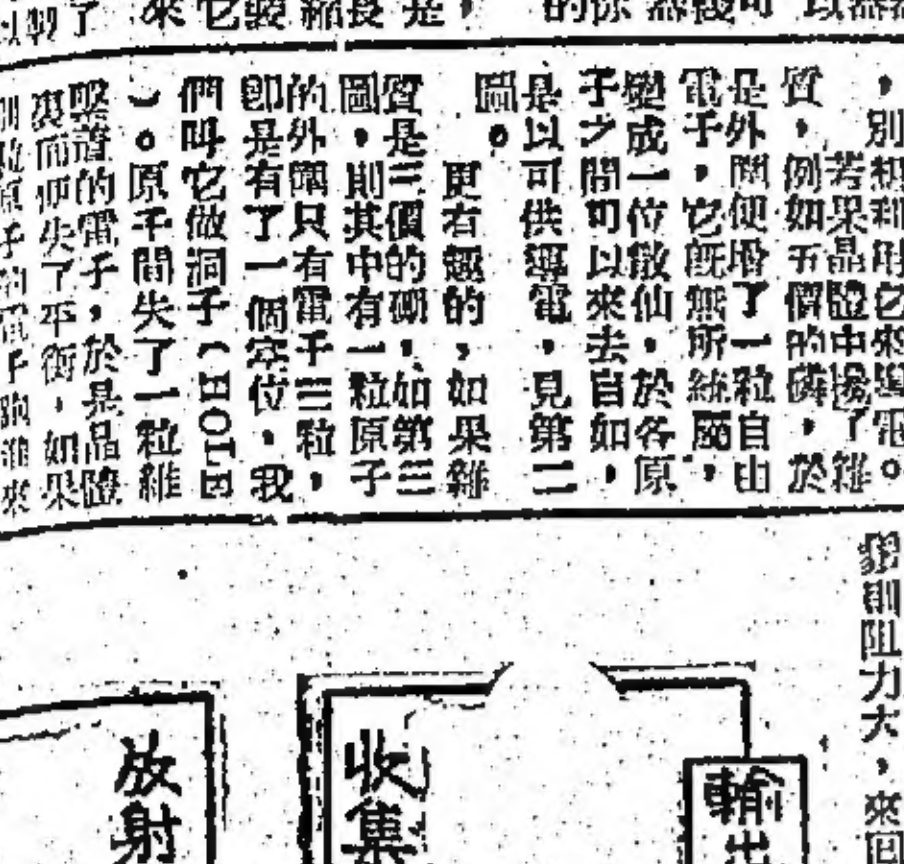 ，別想利用它來導電。
若果晶體中攙了雜
質，例如五價的磷，於
是外圍便增了一粒自由
電子，它既無所統屬，
變成一位散仙，於各原
子之間可以來去自如，
是以可供導電，見第二
圖。
更有趣的，如果雜
質是三價的硼，如第三
圖，則其中有一粒原子
的外圍只有電子三粒，
即是有了一個空位，我
們叫它做洞子（HOLE
）。原子間失了一粒維
繫着的電子，於是晶體
裏面便失了平衡，如果
則阻力大，來回
輸出
收集
放射